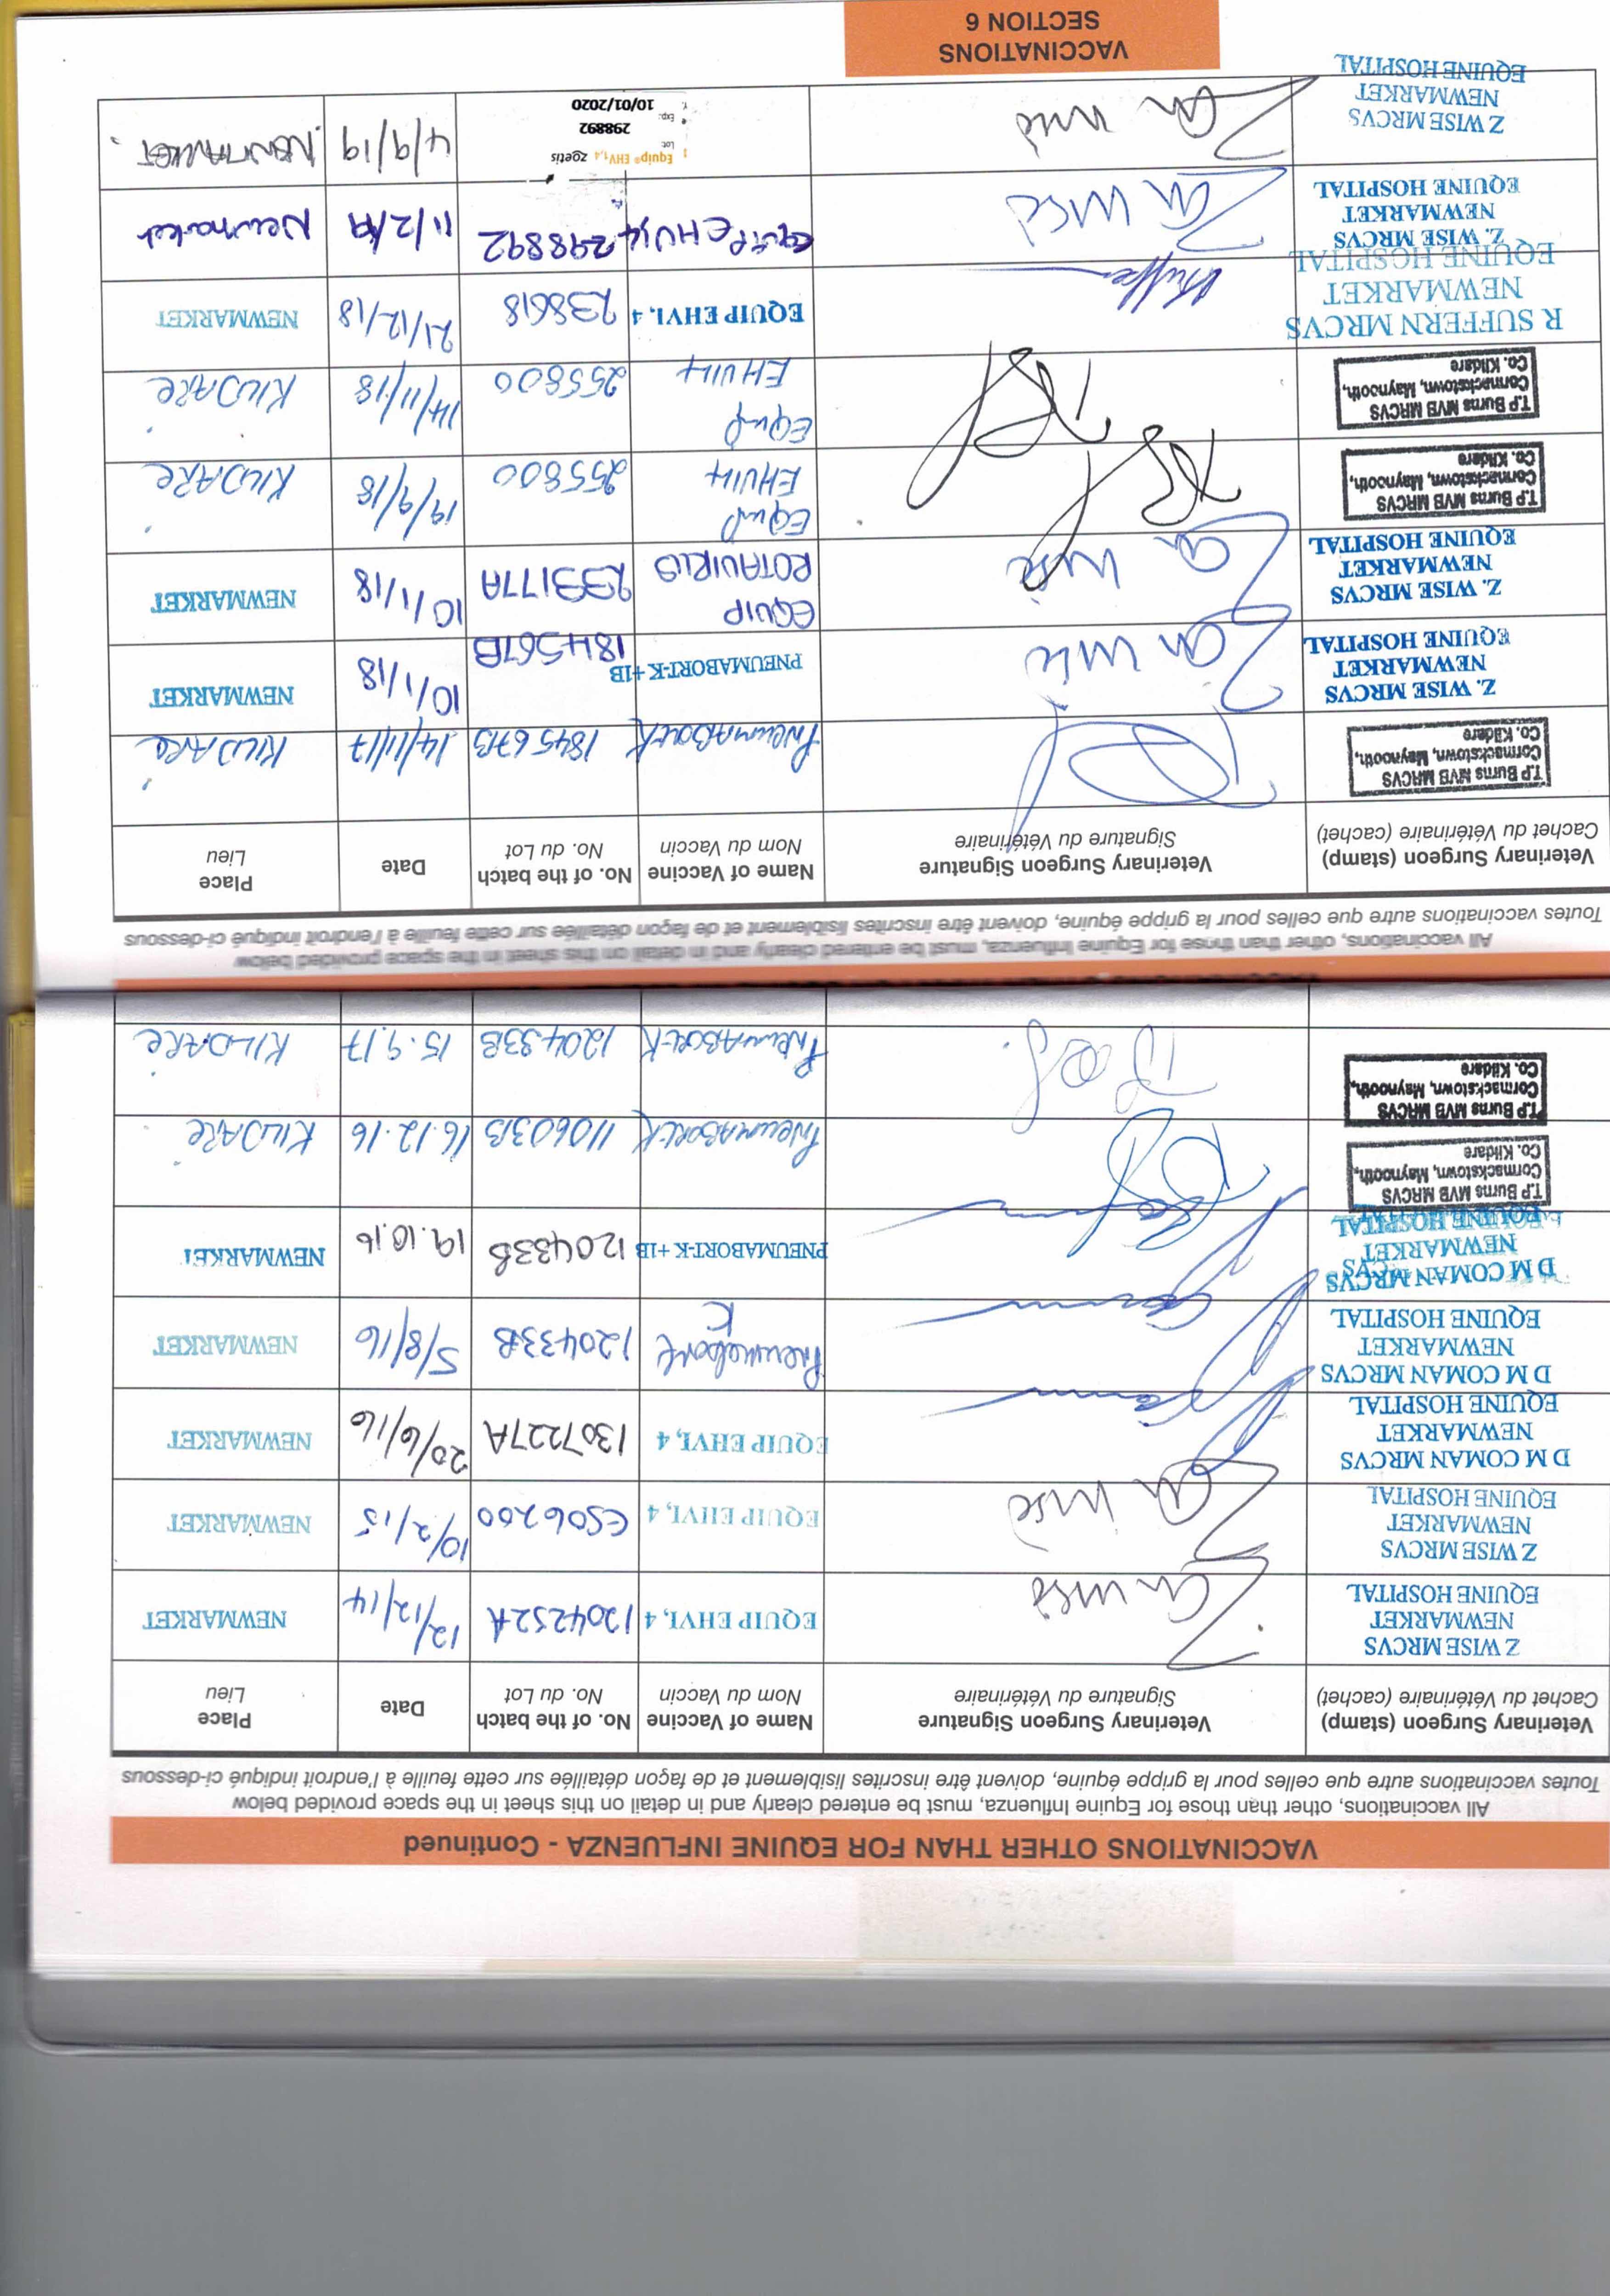 VACCINATIONS OTHER THAN FOR EQUINE INFLUENZA - Continued
All vaccinations, other than those for Equine Influenza, must be entered clearly and in detail on this sheet in the space provided below
Toutes vaccinations autre que celles pour la grippe équine, doivent être inscrites lisiblement et de façon détaillée sur cette feuille à l'endroit indiqué ci-dessous
Veterinary Surgeon (stamp) Veterinary Surgeon Signature Name of Vaccine No. of the batch Date Place
Cachet du Vétérinaire (cachet) Signature du Vétérinaire Nom du Vaccin No. du Lot Lieu
Z WISE MRCVS
NEWMARKET
EQUINE HOSPITAL
EQUIP EHV1, 4 1204252A 12/12/14 NEWMARKET
Z WISE MRCVS
NEWMARKET
EQUINE HOSPITAL
EQUIP EHV1, 4 ES06200 10/2/15 NEWMARKET
D M COMAN MRCVS
NEWMARKET
EQUINE HOSPITAL
EQUIP EHV1, 4 1307227A 20/6/16 NEWMARKET
D M COMAN MRCVS
NEWMARKET
EQUINE HOSPITAL
Pneumabort
K
120433B 5/8/16 NEWMARKET
D M COMAN MRCVS
NEWMARKET
EQUINE HOSPITAL
PNEUMABORT-K +1B 120433B 19.10.16 NEWMARKET
T.P Burns MVB MRCVS
Cormackstown, Maynooth,
Co. Kildare
PNEUMABORT K 110603B 16.12.16 KILDARE
T.P Burns MVB MRCVS
Cormackstown, Maynooth,
Co. Kildare
PNEUMABORT K 120433B 15.9.17 KILDARE
All vaccinations, other than those for Equine Influenza, must be entered clearly and in detail on this sheet in the space provided below
Toutes vaccinations autre que celles pour la grippe équine, doivent être inscrites lisiblement et de façon détaillée sur cette feuille à l'endroit indiqué ci-dessous
Veterinary Surgeon (stamp) Veterinary Surgeon Signature Name of Vaccine No. of the batch Date Place
Cachet du Vétérinaire (cachet) Signature du Vétérinaire Nom du Vaccin No. du Lot Lieu
T.P Burns MVB MRCVS
Cormackstown, Maynooth,
Co. Kildare
PNEUMABORT K 184567B 14/11/17 KILDARE
Z. WISE MRCVS
NEWMARKET
EQUINE HOSPITAL
PNEUMABORT-K +1B 184567B 10/1/18 NEWMARKET
Z. WISE MRCVS
NEWMARKET
EQUINE HOSPITAL
EQUIP
ROTAVIRUS
233177A 10/1/18 NEWMARKET
T.P Burns MVB MRCVS
Cormackstown, Maynooth,
Co. Kildare
EQUIP
EHV1,4
255800 19/9/18 KILDARE
T.P Burns MVB MRCVS
Cormackstown, Maynooth,
Co. Kildare
EQUIP
EHV1,4
255800 14/11/18 KILDARE
R SUFFERN MRCVS
NEWMARKET
EQUINE HOSPITAL
EQUIP EHV1, 4 238618 21/12/18 NEWMARKET
Z. WISE MRCVS
NEWMARKET
EQUINE HOSPITAL
EQUIP EHV1,4 298892 11/2/19 Newmarket
Z WISE MRCVS
NEWMARKET
EQUINE HOSPITAL
Equip® EHV1,4 zoetis
Lot
298892
Exp.
10/01/2020
4/9/19 NEWMARKET
VACCINATIONS
SECTION 6